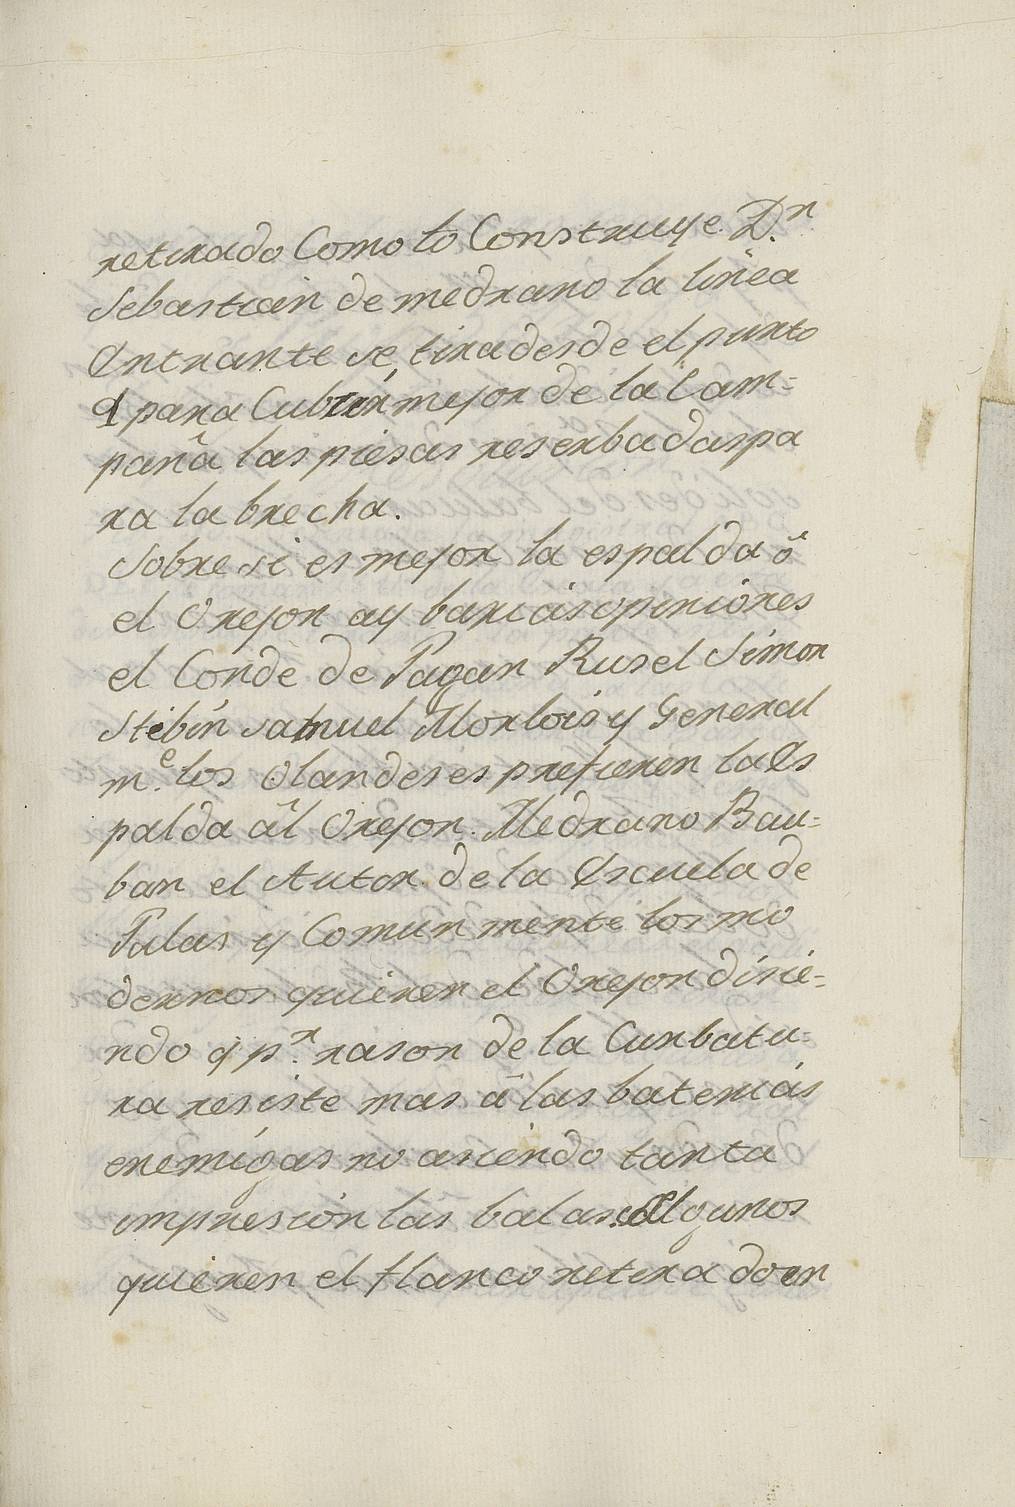 retirado Como lo Construye D.n
Sebastian de medrano la linea
Entrante se tira desde el punto
q para Cubrir mejor de la Cam=
paña las piesas reserbadas pa
ra la brecha.
Sobre si es mejor la espalda ô
el Orejon ay barias opiniones
el Conde de Pagan Rusel Simon
Stebin samuel Morlois y General
m.e los Olandeses prefieren la Es
palda âl Orejon. Medrano Bau=
ban el Autor de la Escuela de
Palas y Comun mente los mo
dernos quieren el Orejon disie=
ndo q p.r rason de la Curbatu=
ra resiste mas â las baterias
enemigas no asiendo tanta
impresion las balas. Algunos
quieren el flanco retirado en